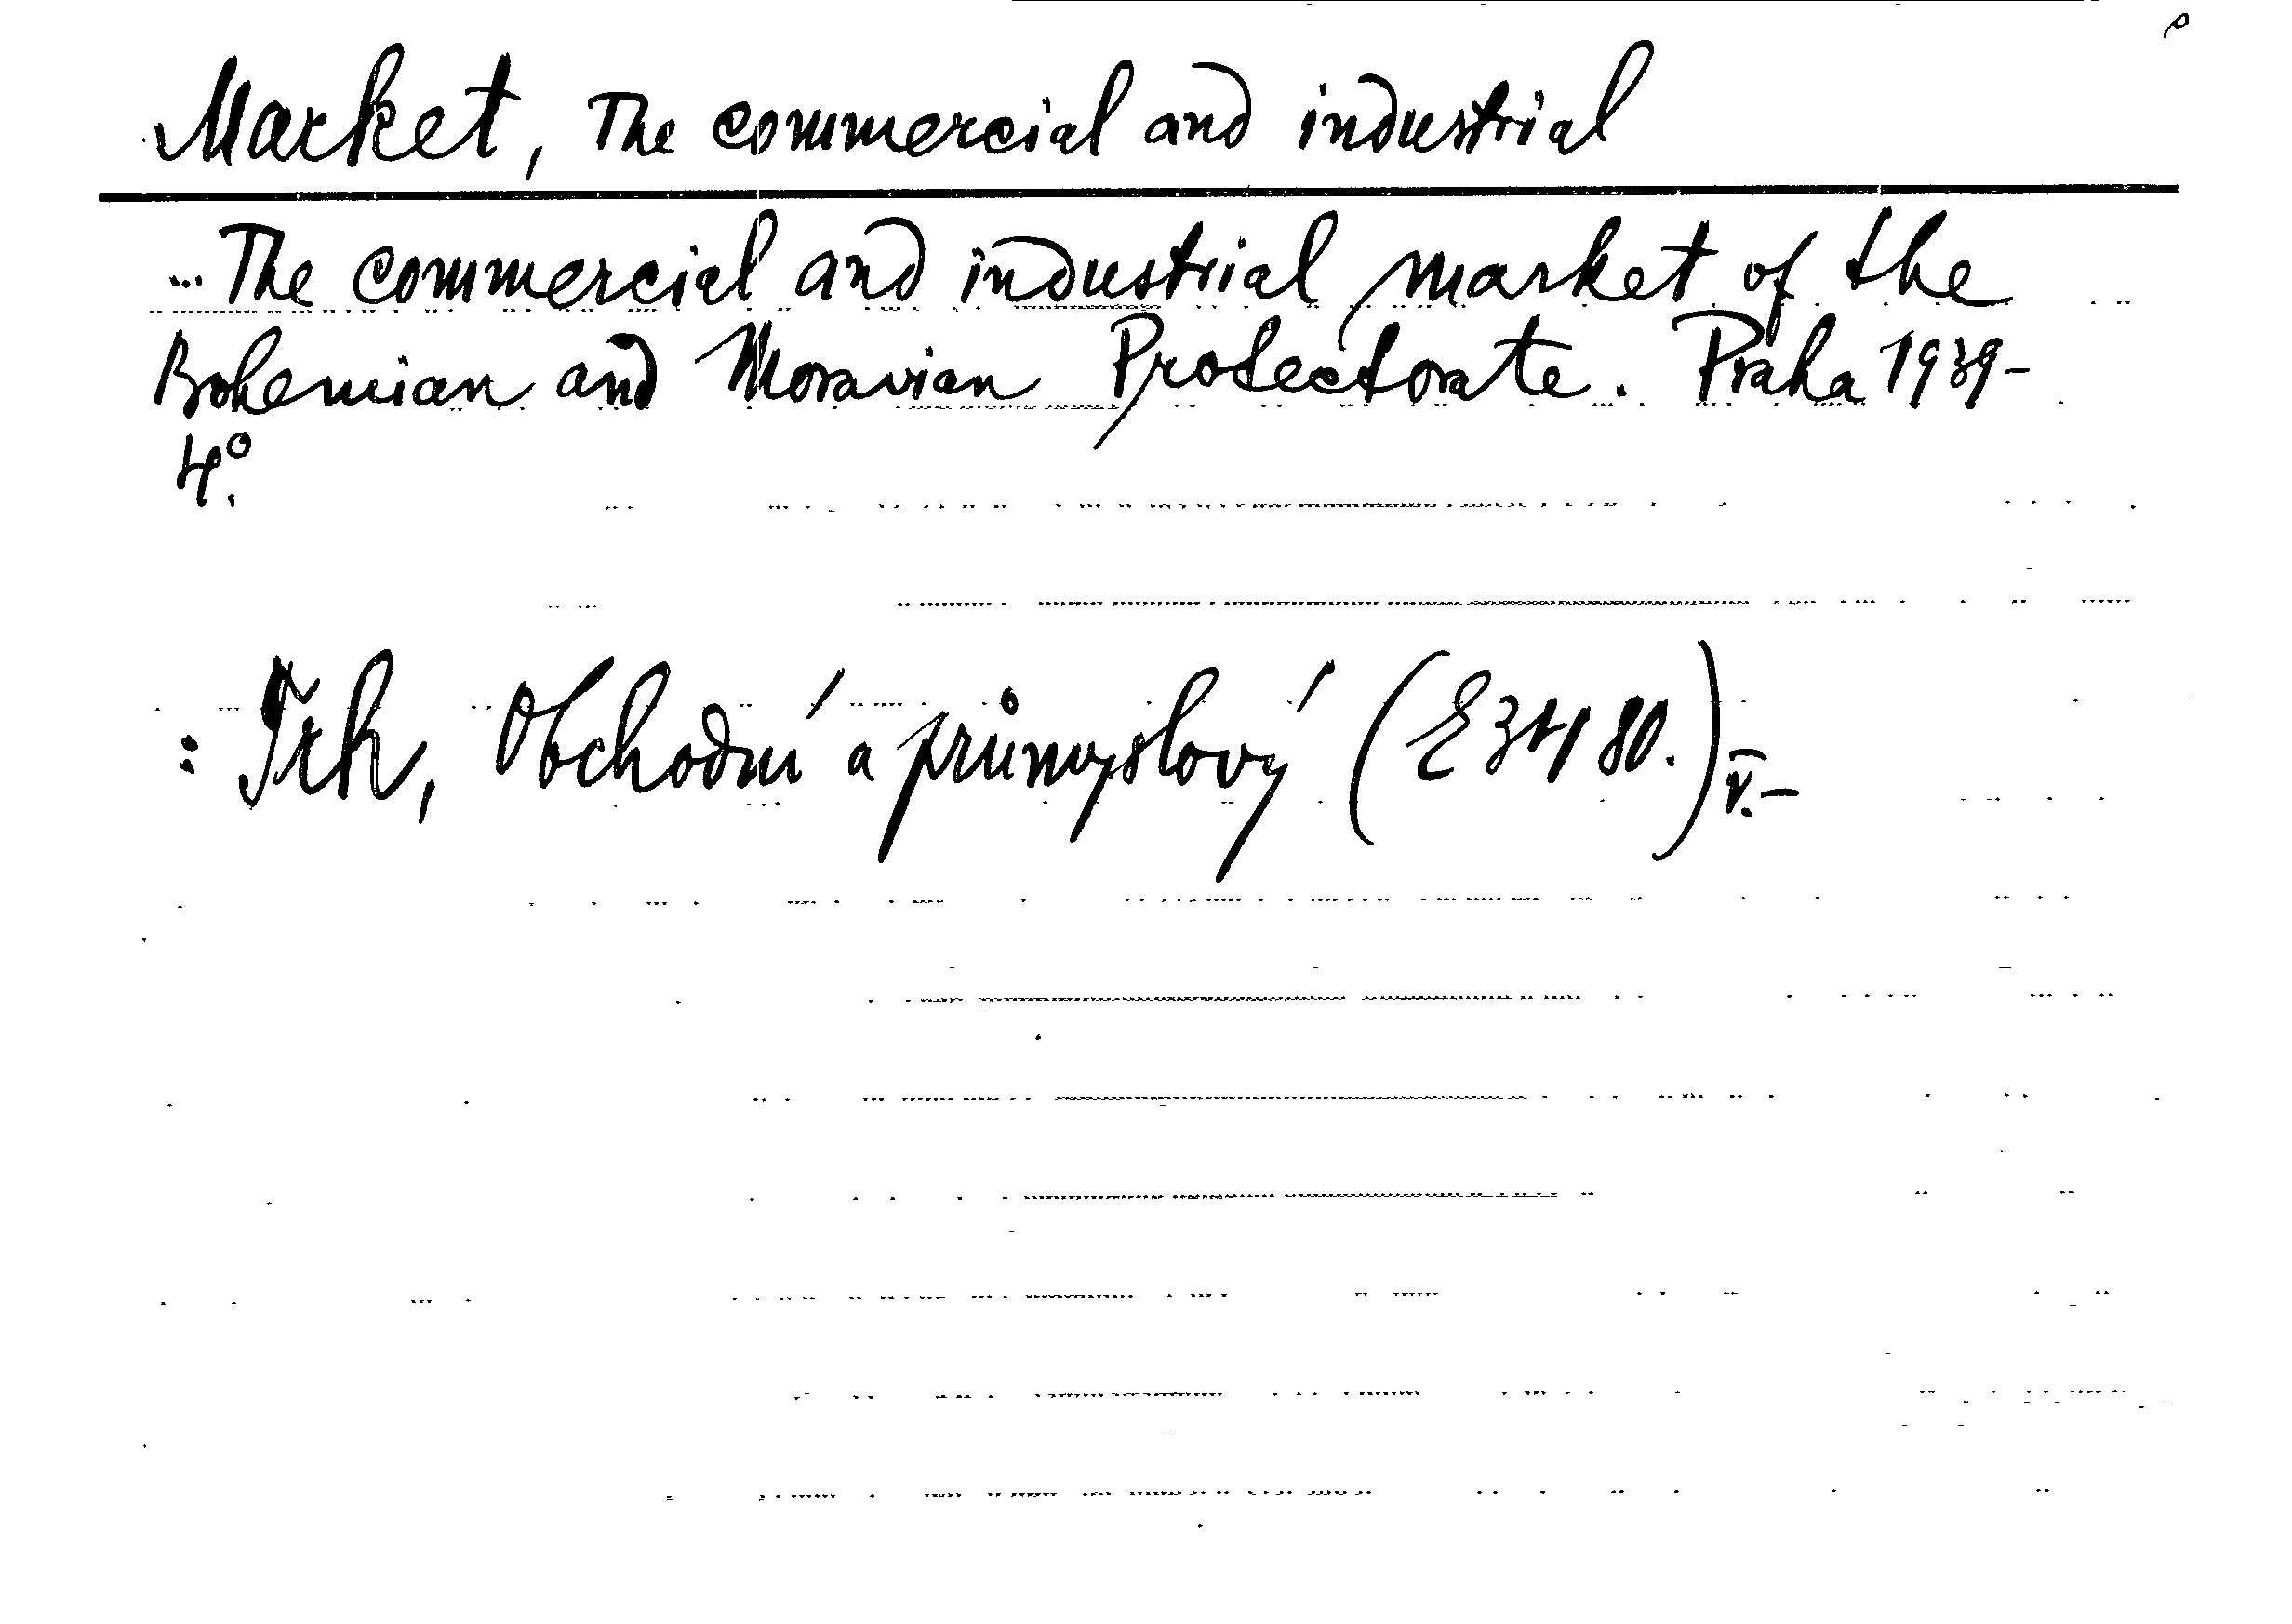 Market, The commercial and industrial
... The commercial and industrial market of the
Bohemian and Moravian Protectorate. Praha 1939-
4°.
: Trh, Obchodní a průmyslový (E 3480.)